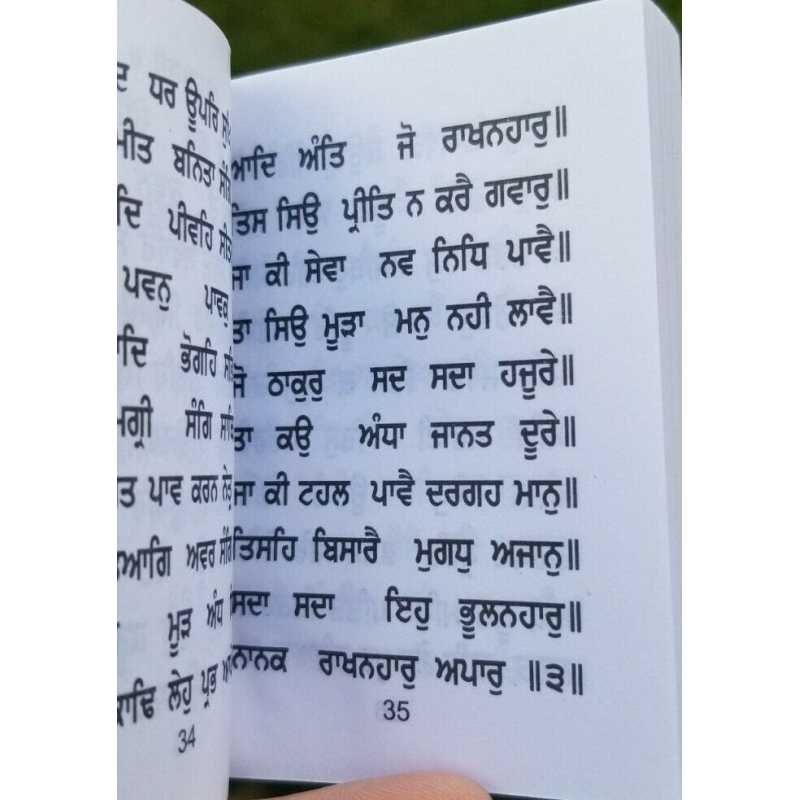 ਧਰ ਊਪਰਿ
ਬਨਿਤਾ
ਪੀਵਹਿ
ਪਵਨੁ
ਭੋਗਹਿ
ਸੰਗਿ
ਪਾਵ ਕਰਨ
ਅਵਰ
ਮੂੜ ਅੰਧ
ਲੇਹੁ ਪ੍ਰਭ
34
ਆਦਿ ਅੰਤਿ ਜੋ ਰਾਖਨਹਾਰੁ॥
ਤਿਸ ਸਿਉ ਪ੍ਰੀਤਿ ਨ ਕਰੈ ਗਵਾਰੁ॥
ਜਾ ਕੀ ਸੇਵਾ ਨਵ ਨਿਧਿ ਪਾਵੈ॥
ਤਾ ਸਿਉ ਮੂੜਾ ਮਨੁ ਨਹੀ ਲਾਵੈ॥
ਜੋ ਠਾਕੁਰੁ ਸਦ ਸਦਾ ਹਜੂਰੇ॥
ਤਾ ਕਉ ਅੰਧਾ ਜਾਨਤ ਦੂਰੇ॥
ਜਾ ਕੀ ਟਹਲ ਪਾਵੈ ਦਰਗਹ ਮਾਨੁ॥
ਤਿਸਹਿ ਬਿਸਾਰੈ ਮੁਗਧੁ ਅਜਾਨੁ॥
ਸਦਾ ਸਦਾ ਇਹੁ ਭੂਲਨਹਾਰੁ॥
ਨਾਨਕ ਰਾਖਨਹਾਰੁ ਅਪਾਰੁ ॥੩॥
35